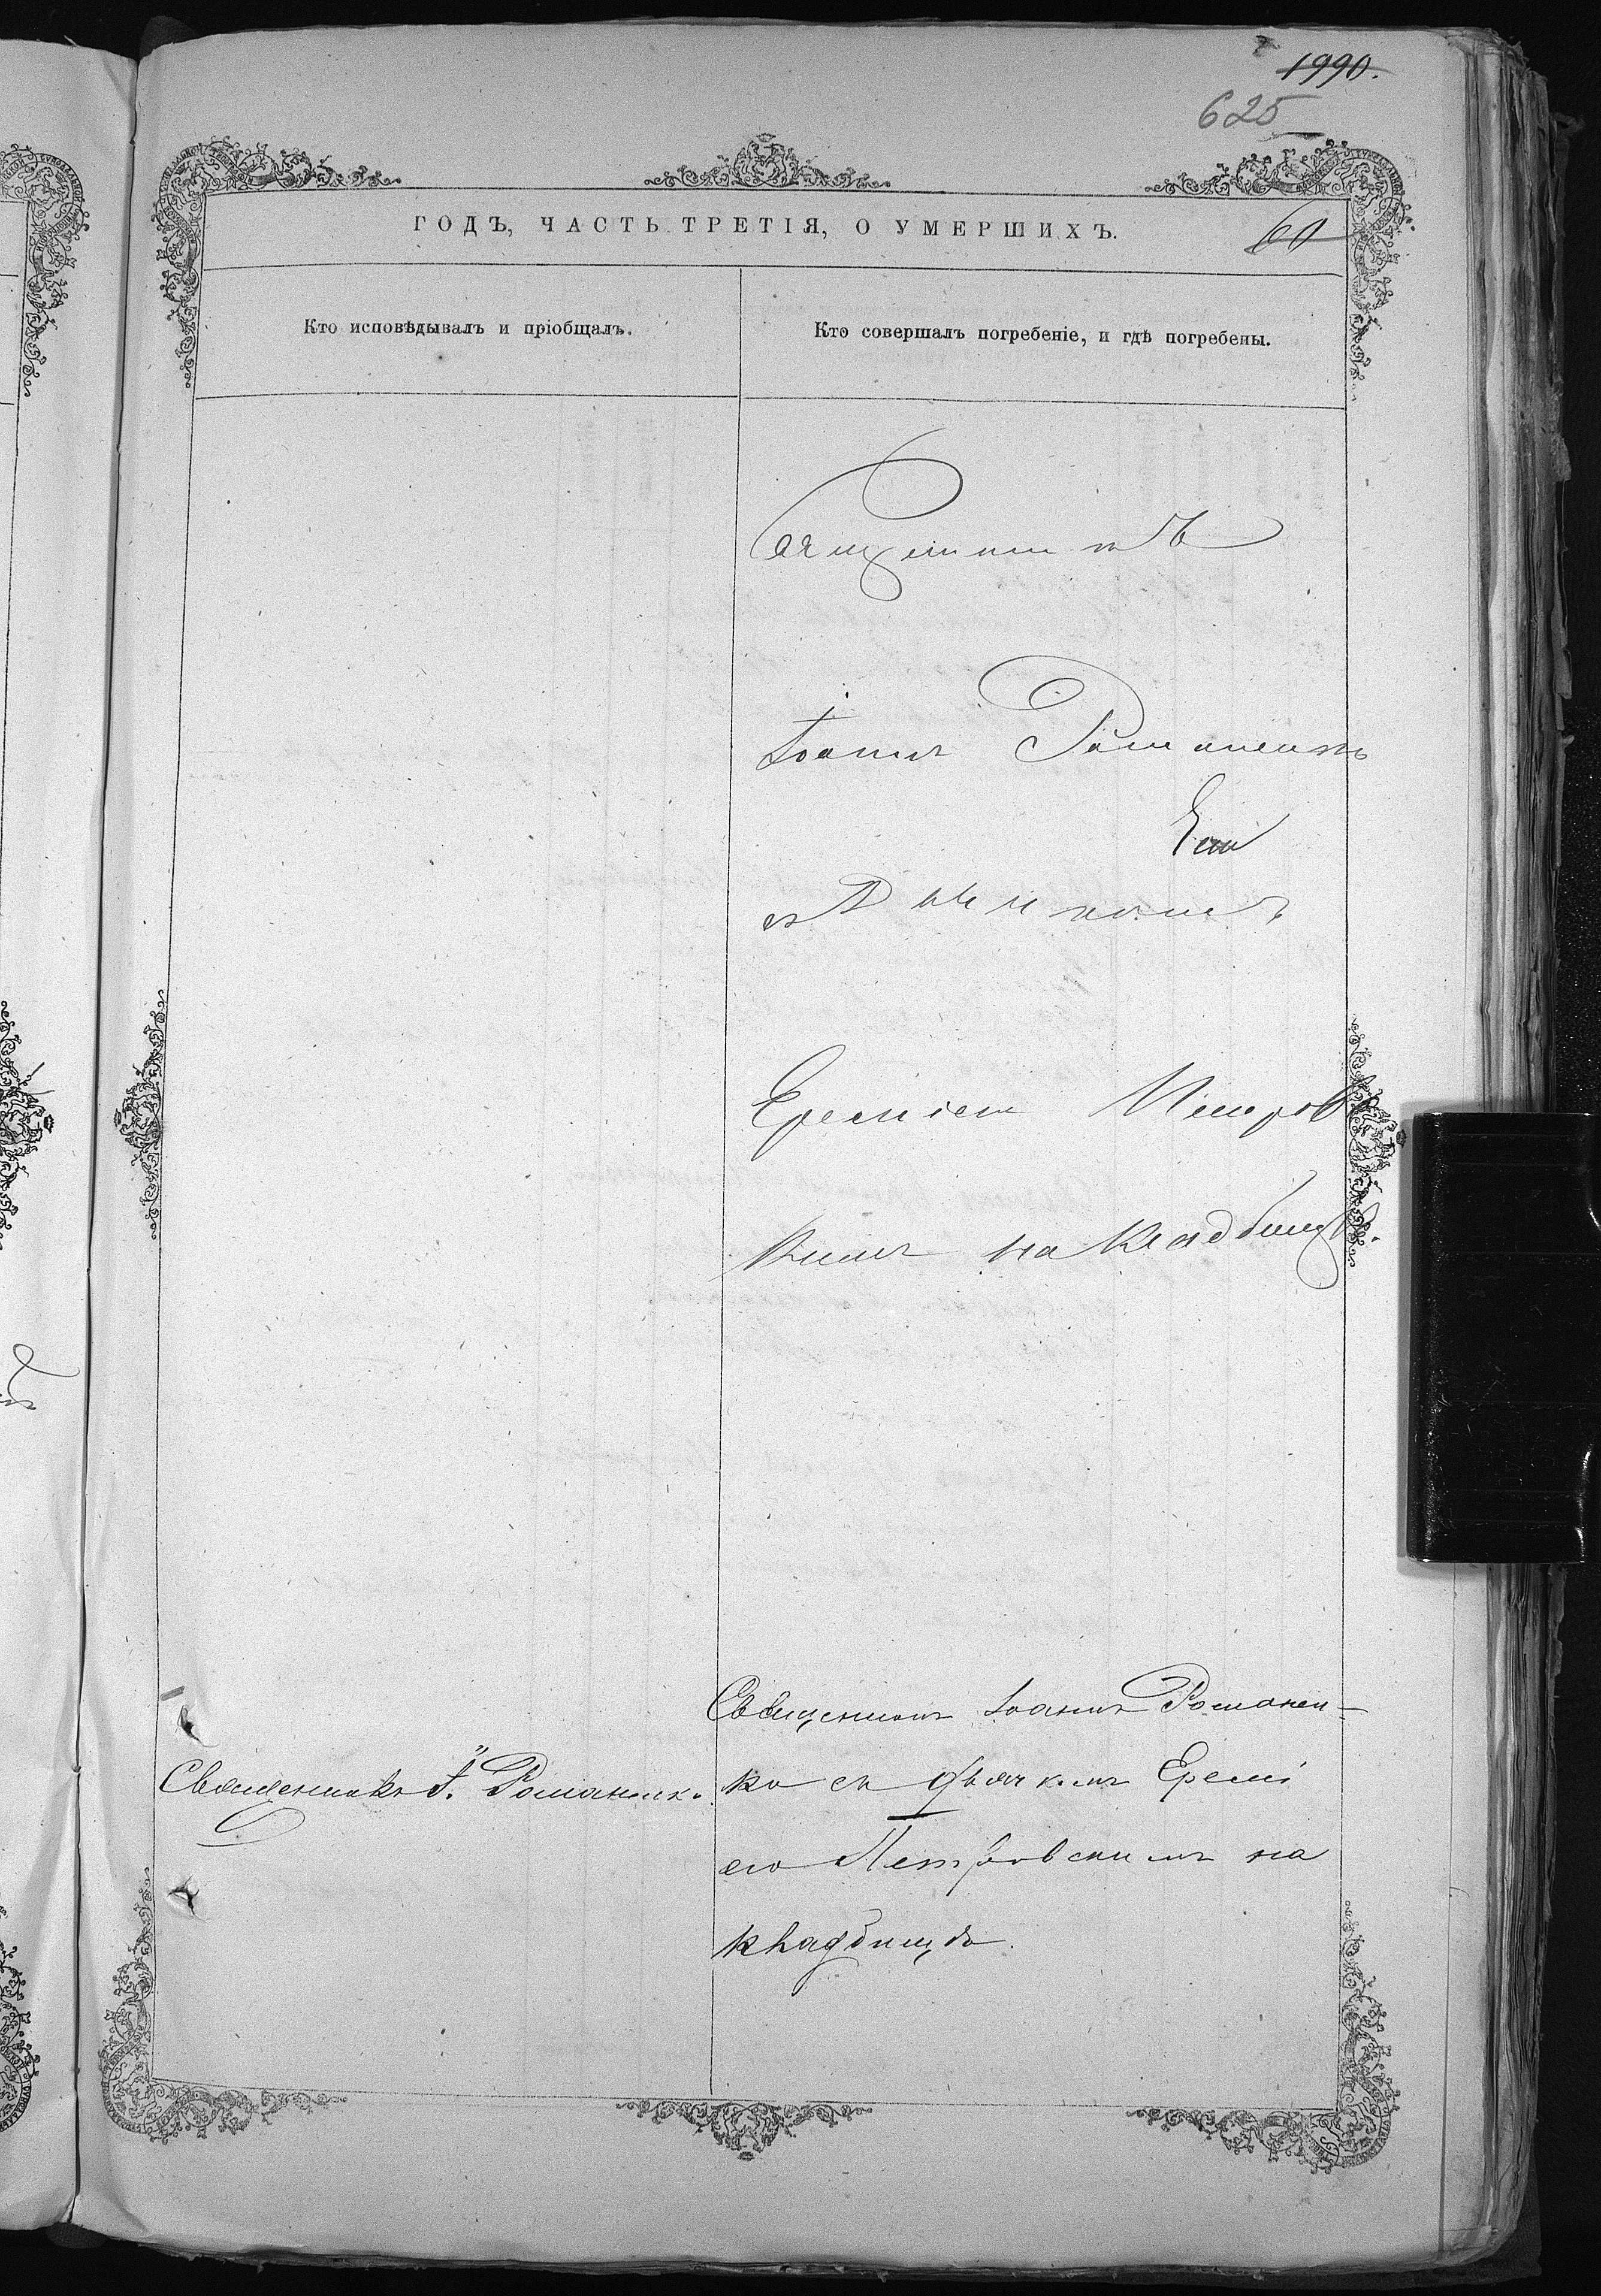 1990.
625
ГОДЪ, ЧАСТЬ ТРЕТІЯ, О УМЕРШИХЪ.
60
Кто исповѣдывалъ и пріобщалъ.
Кто совершалъ погребеніе, и гдѣ погребены.
Іоаннъ Романенко
Ереміем Петровс
кимъ на кладбищѣ.
Священикъ Іоаннъ Романен-
Священникъ І. Романенко.
ко съ дьячкомъ Еремі
ею Петровскимъ на
кладбищѣ.